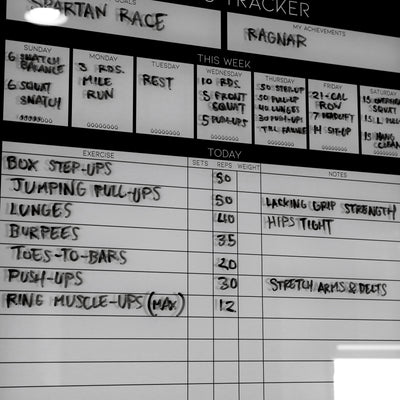 GOALS
TRACKER
SPARTAN RACE
MY ACHIEVEMENTS
RAGNAR
THIS WEEK
SUNDAY
6 SNATCH
BALANCE
6 SQUAT
SNATCH
MONDAY
3 RDS.
MILE
RUN
TUESDAY
REST
WEDNESDAY
10 RDS.
5 FRONT
SQUAT
5 PUSH-UPS
THURSDAY
50 STEP-UP
50 PULL-UP
40 LUNGES
30 PUSH-UPS
TILL FAILURE
FRIDAY
21-CAL
ROW
7 DEADLIFT
14 SIT-UP
SATURDAY
15 OVERHEAD
SQUAT
15 L PULL
15 HANG
CLEAN
TODAY
EXERCISE SETS REPS WEIGHT NOTES
BOX STEP-UPS 50
JUMPING PULL-UPS 50 LACKING GRIP STRENGTH
LUNGES 40 HIPS TIGHT
BURPEES 35
TOES-TO-BARS 20
PUSH-UPS 30 STRETCH ARMS & DELTS
RING MUSCLE-UPS (MAX) 12